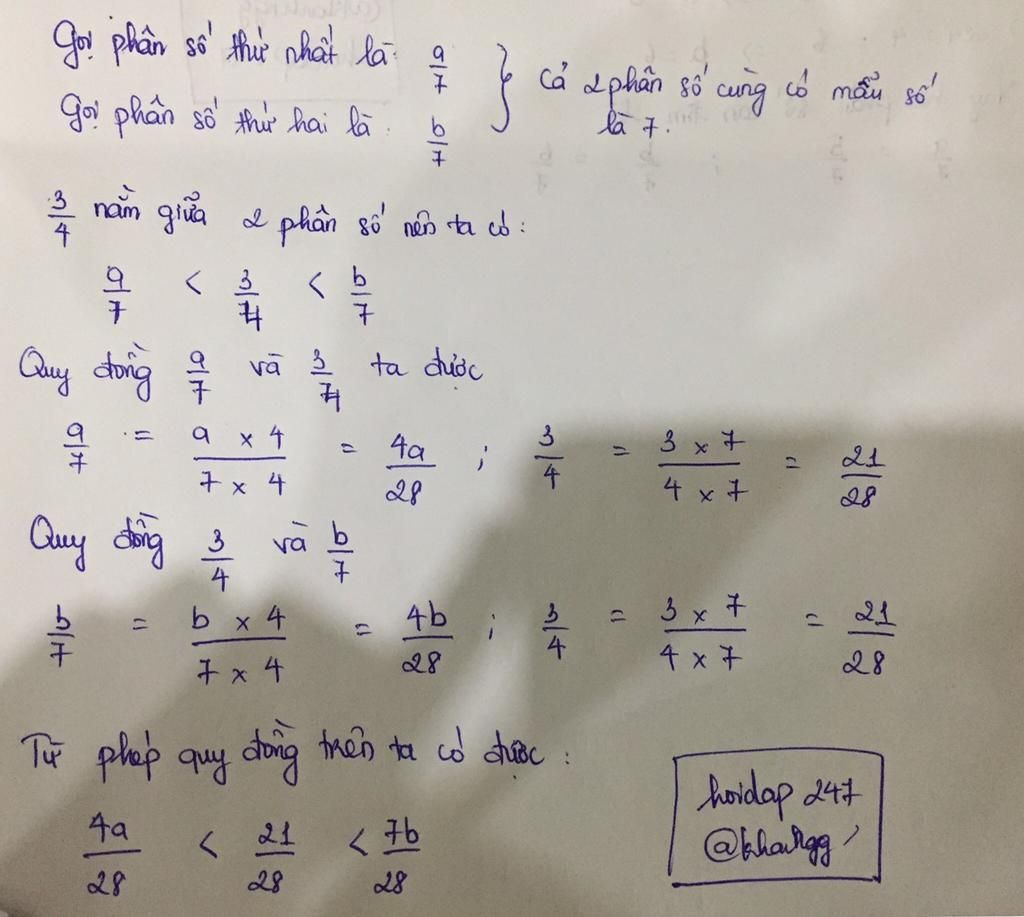 Gọi phân số thứ nhất là: a/7
Gọi phân số thứ hai là: b/7
} Cả 2 phân số cùng có mẫu số
là 7.
3/4 nằm giữa 2 phân số nên ta có:
a/7 < 3/4 < b/7
Quy đồng a/7 và 3/4 ta được
a/7 = a x 4 / 7 x 4 = 4a/28 ; 3/4 = 3 x 7 / 4 x 7 = 21/28
Quy đồng 3/4 và b/7
b/7 = b x 4 / 7 x 4 = 4b/28 ; 3/4 = 3 x 7 / 4 x 7 = 21/28
Từ phép quy đồng trên ta có được :
4a/28 < 21/28 < 7b/28
hoidap 247